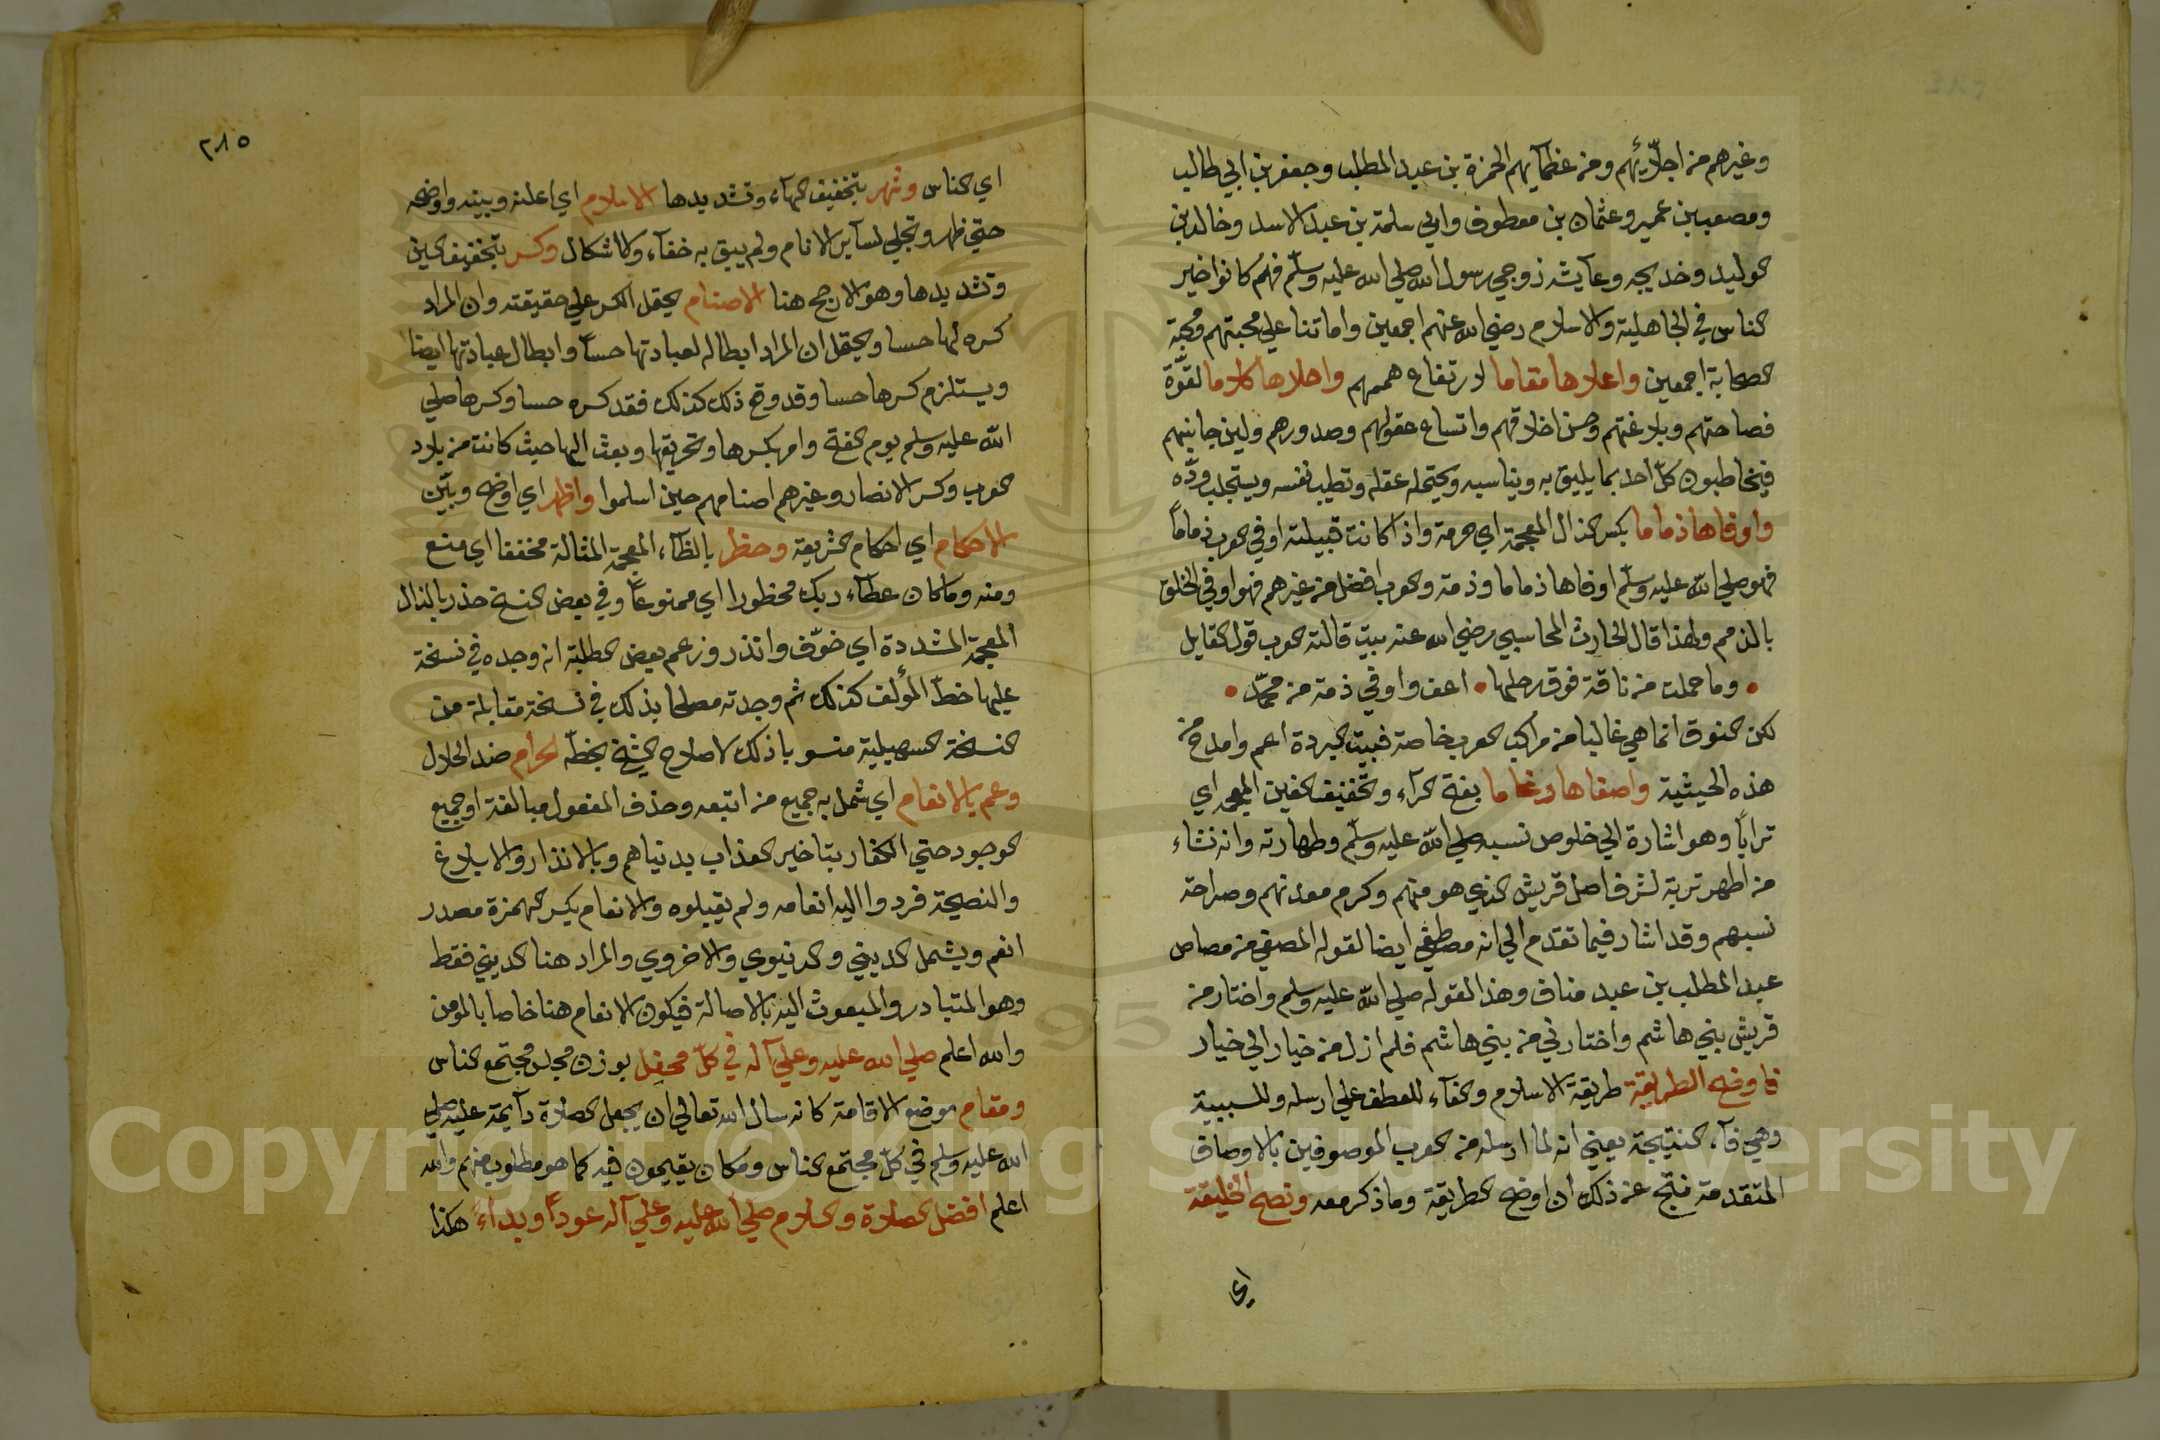 وغيرهم من اجلّائهم ومن عظمآيهم الحمزة بن عبد المطلب وجعفر بن ابي طالب
ومصعب بن عمير وعثمان بن معطوف وابي سلمة بن عبد الاسد وخالد بن
الوليد وخديجه وعآيشه زوجي رسول الله صلي الله عليه وسلّم فهم كانوا خير
الناس في الجاهلية والاسلام رضي الله عنهم اجمعين واماتنا علي محبتهم ومحبة
الصحابة اجمعين واعلاها مقاما لارتفاع هممهم واحلاها كلاما لقوّة
فصاحتهم وبلاغتهم وحسن اخلاقهم واتساع عقولهم وصدورهم ولين جانبهم
فيخاطبون كلّ احد بما يليق به ويناسبه ويحتمله عقله وتطيب نفسه ويستجلب ودّه
واوفاها ذماما بكسر الذال المعجمة اي حرمة واذا كانت قبيلته اوفي العرب ذماماً
فهو صلي الله عليه وسلّم اوفاها ذماما وذمة والعرب افضل من غيرهم فهو اوفي الخلق
بالذمم ولهذا قال الحارث المحاسبي رضي الله عنه بيت قالته العرب قول القايل
• وما حملت من ناقة فوق رحلها • اعف واوفي ذمة من محمّد •
لكن النوق انما هي غالبا من مراكب العرب خاصة فبيت البردة اعم وامدح من
هذه الحيثية واصفاها رغاما بفتح الرآء وتخفيف الغين المعجمه اي
تراباً وهو اشارة الي خلوص نسبه صلي الله عليه وسلّم وطهارته وانه نشاء
من اطهر تربة لشرف اصل قريش الذي هو منهم وكرم معدنهم وصراحة
نسبهم وقد اشار فيما تقدم الي انه مصطفي ايضا لقوله المصفي من مصاص
عبد المطلب بن عبد مناف وهذا لقوله صلي الله عليه وسلم واختار من
قريش بني هاشم واختارني من بني هاشم فلم ازل من خيار الي خيار
فاوضح الطريقة طريقة الاسلام والفآء للعطف علي ارسله وللسببية
وهي فآء النتيجة يعني انه لما ارسله من العرب الموصوفين بالاوصاف
المتقدمة فنتج عن ذلك ان اوضح الطريقة وما ذكر معه ونصح الخليقة
اي
٢٨٥
اي الناس وشهر بتخفيف الهآء وتشديدها الاسلام اي اعلنه وبينه واوضحه
حتي ظهر وتجلي لسآير الانام ولم يبق به خفآء ولا اشكال وكسر بتخفيف السين
وتشديدها وهو الارجح هنا الاصنام يحتمل الكسر علي حقيقته وان المراد
كسره لها حسا ويحتمل ان المراد ابطاله لعبادتها حساً وابطال عبادتها ايضا
ويستلزم كسرها حسا وقد وقع ذلك كذلك فقد كسره حسا وكسرها صلي
الله عليه وسلم يوم الفتح وامر بكسرها وتحريقها وبعث اليها حيث كانت من بلاد
العرب وكسر الانصار وغيرهم اصنامهم حين اسلموا واظهر اي اوضح وبيّن
الاحكام اي احكام الشريعة وحظر بالظآء المعجمة المشالة مخففا اي منع
ومنه وما كان عطآء ربك محظورا اي ممنوعاً وفي بعض النسخ حذر بالذال
المعجمة المشددة اي خوّف وانذر وزعم بعض الطلبة انه وجده في نسخة
عليها خطّ المؤلف كذلك ثم وجدته مصلحا بذلك في نسخة مقابلة من
النسخة السهيلية منسوبا ذلك لاصلاح الشيخ بخطّه الحرام ضد الحلال
وعم بالانعام اي شمل به جميع من اتبعه وحذف المفعول مبالغة او جميع
الوجود حتي الكفار بتاخير العذاب بدنياهم وبالانذار والابلاغ
والنصيحة فردوا اليه انعامه ولم يقبلوه والانعام بكسر الهمزة مصدر
انعم ويشمل الديني والدنيوي والاخروي والمراد هنا الديني فقط
وهو المتبادر والمبعوث اليه بالاصالة فيكون الانعام هنا خاصا بالمومن
والله اعلم صلي الله عليه وعلي آله في كلّ محفل بوزن مجلس مجتمع الناس
ومقام موضع الاقامة كانه سال الله تعالي ان يجعل الصلاة دآيمة عليه صلي
الله عليه وسلم في كلّ مجتمع الناس ومكان يقيمون فيه كما هو مطلوب منهم والله
اعلم افضل الصلاة والسلام صلي الله عليه وعلي آله عوداً وبداءً هكذا
Copyright © King Saud University